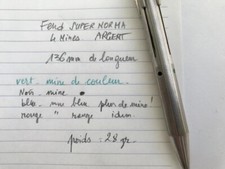 Fend SUPER NORMA
4 Mines ARGENT
136 mm de longueur
vert - mine de couleur
Noir - mine
bleu - mine bleu plus de mine !
rouge " rouge idem
poids : 28 gr.